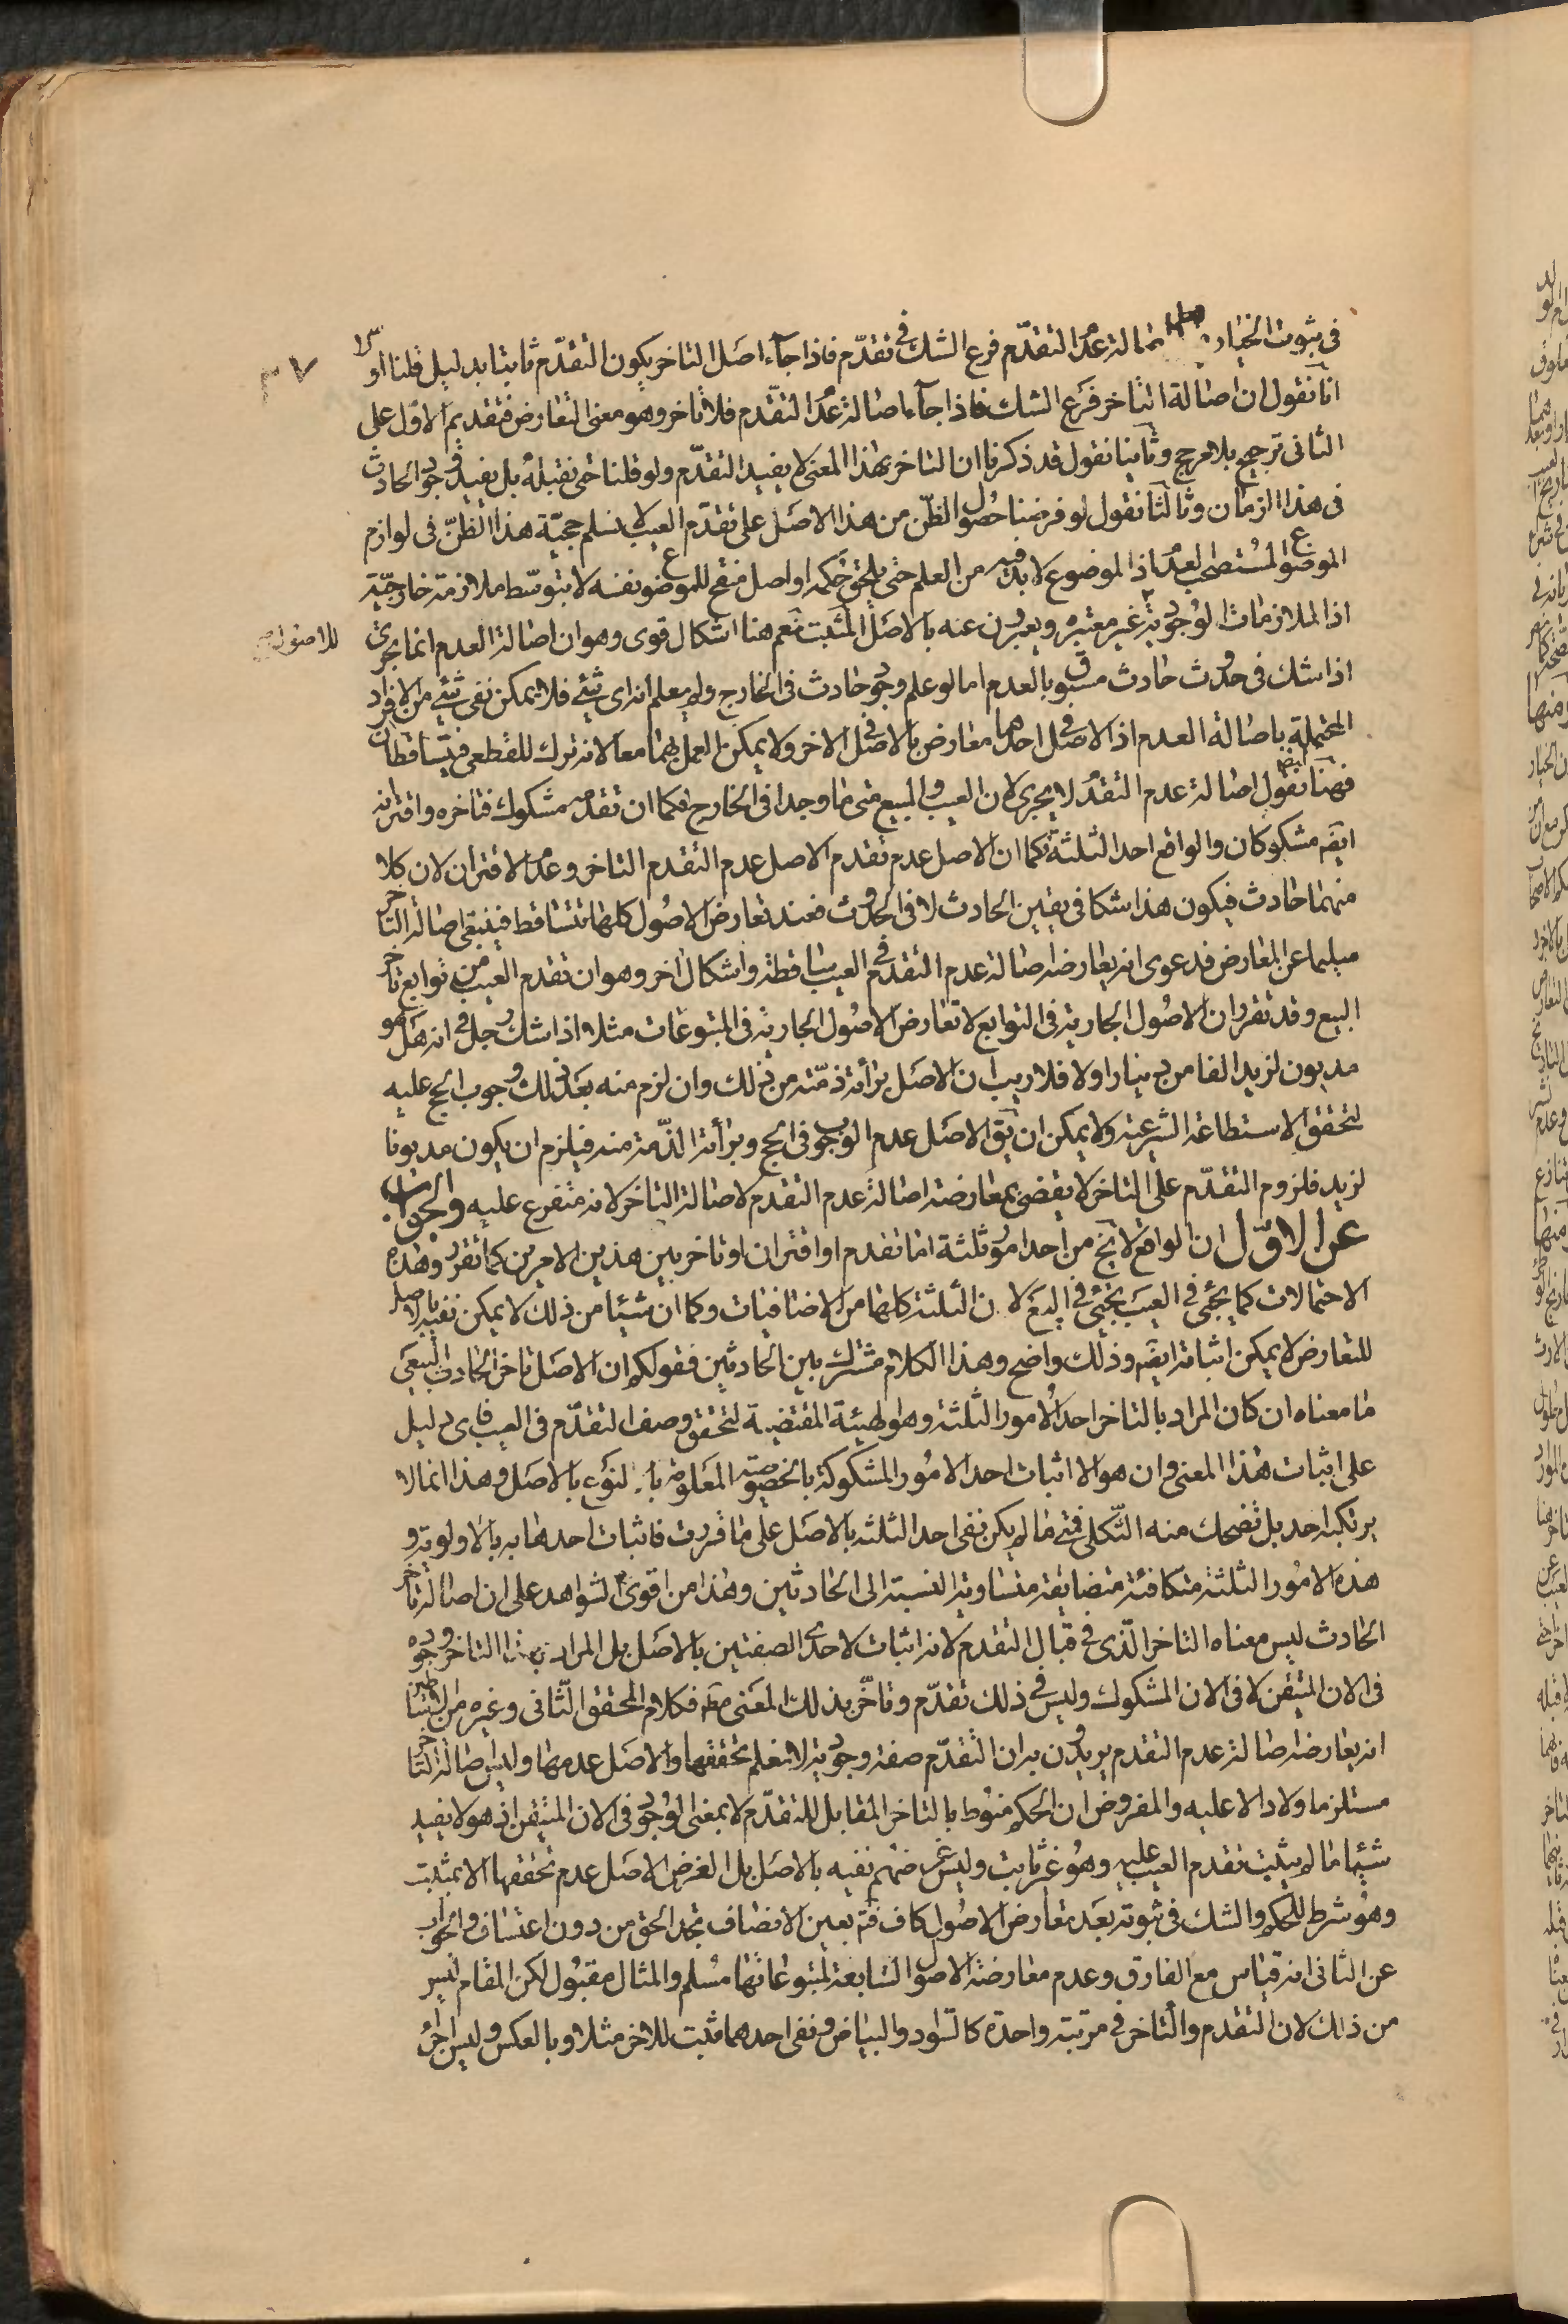 فى ثبوت الخيار اصالة عدم التقدّم فرع الشك فى تقدّم فاذا جآء اصل التاخر يكون التقدّم ثابتا بدليل قلنا او
٣٧
انا نقول ان اصالة التاخر فرع الشك فاذا جآء اصالة عدم التقدّم فلا تاخر وهو معنى التعارض فتقديم الاول على
الثانى ترجيح بلا مرجح وثانيا نقول قد ذكرنا ان التاخر بهذا المعنى لا يفيد التقدّم ولو قلنا حتى نقبله بل يفيد وجود الحادث
فى هذا الزمان وثالثا نقول لو فرضنا حصول الظن من هذا الاصل على تقدّم العيب لا نسلم حجيّة هذا الظنّ فى لوازم
الموضوع المستصحب لعدم اذ الموضوع لا بد فيه من العلم حتى يلحق حكمه او اصل منقح للموضوع نفسه لا بتوسّط ملازمة خارجيّة
اذ الملازمات الوجوديّة غير معتبره ويعبرون عنه بالاصل المثبت نعم هنا اشكال قوى وهو ان اصالة العدم انما يجرى
للاصول
اذا شك فى حدوث حادث مسبوق بالعدم اما لو علم وجود حادث فى الخارج ولم يعلم انه اى شئ فلا يمكن نفى شئ من الافراد
المحتملة باصالة العدم اذ الاصل فى احدهما معارض بالاصل فى الاخر ولا يمكن العمل بهما معا لانه ترك للقطعى فيتساقطان
فهنا ايضا نقول اصالة عدم التقدم لا يجرى لان العيب والمبيع متى ما وجدا فى الخارج فكما ان تقدمه مشكوك فتاخره واقترانه
ايضه مشكوكان والواقع احد الثلثة فكما ان الاصل عدم تقدم الاصل عدم التقدم التاخر وعدم الاقتران لان كلا
منهما حادث فيكون هذا شكا فى تعيين الحادث لا فى الحدوث فعند تعارض الاصول كلها تتساقط فيبقى اصالة التاخر
سليما عن المعارض فدعوى انه يعارضه اصالة عدم التقدم فى العيب ساقطة واشكال اخر وهو ان تقدم العيب من توابع تاخر
البيع وقد تقرر ان الاصول الجارية فى التوابع لا تعارض الاصول الجارية فى المتبوعات مثلا اذا شك رجل فى انه هل هو
مديون لزيد الفا من دينار اولا فلا ريب ان الاصل برائة ذمّته من ذلك وان لزم منه بعد ذلك وجوب الحج عليه
لتحقق الاستطاعة الشرعية ولا يمكن ان يق الاصل عدم الوجوب فى الحج وبرأة الذّمة منه فيلزم ان يكون مديونا
لزيد فلزوم التقدّم على التاخر لا يقضى بمعارضة اصالة عدم التقدم لاصالة التاخر لانه متفرع عليه والجواب
عن الاوّل ان الواقع لا يخ من احد امور ثلثة اما تقدم او اقتران او تاخر بين هذين الامرين كما تقرر وهذه
الاحتمالات كما يجئ فى العيب يجئ فى البيع لان الثلثة كلها من الاضافيات وكما ان شيئا من ذلك لا يمكن نفيه بالاصل
للتعارض لا يمكن اثباته ايضه وذلك واضح وهذا الكلام مشترك بين الحادثين فقولكم ان الاصل تاخر الحادث البيعى
ما معناه ان كان المراد بالتاخر احد الامور الثلثة وهو الهيئة المقتضية لتحقق وصف التقدّم فى العيب فاى دليل
على اثبات هذا المعنى وان هو الا اثبات احد الامور المشكوكة بالخصوصية المعلومة بالنوع بالاصل وهذا انما لا
يرتكبه احد بل تضحك منه الثكلى فمتى ما لم يكن نفى احد الثلثة بالاصل على ما قررت فاثبات احدهما به بالاولوية و
هذه الامور الثلثة متكافئة متضايفة متساوية النسبة الى الحادثين وهذا من اقوى الشواهد على ان اصالة تاخر
الحادث ليس معناه التاخر الّذى فى قبال التقدم لانه اثبات لاحدى الصفتين بالاصل بل المراد بهذا التاخر وجوده
فى الان المتيقن لا فى الان المشكوك وليس فى ذلك تقدّم وتاخّر بذلك المعنى مط فكلام المحقق الثّانى وغيره من اصحابنا
انه يعارضه اصالة عدم التقدم يريدون به ان التقدّم صفة وجودية لا نعلم تحققها والاصل عدمها وليس اصالة التاخر
مستلزما ولا دالا عليه والمفروض ان الحكم منوط بالتاخر المقابل للتقدّم لا بمعنى الوجود فى الان المتيقن اذ هو لا يفيد
شيئا ما لم يثبت تقدم العيب عليه وهو غير ثابت وليس غرضهم نفيه بالاصل بل الغرض الاصل عدم تحققها الا بمثبت
وهو شرط للحكم والشك فى ثبوته بعد تعارض الاصول كاف فتم بعين الانصاف تجد الحق من دون اعتساف والجواب
عن الثانى انه قياس مع الفارق وعدم معارضة الاصول التابعة لمتبوعاتها مسلم والمثال مقبول لكن المقام ليس
من ذلك لان التقدم والتاخر فى مرتبة واحدة كالسّواد والبياض ونفى احدهما مثبت للاخر مثلا وبالعكس وليس اجراء